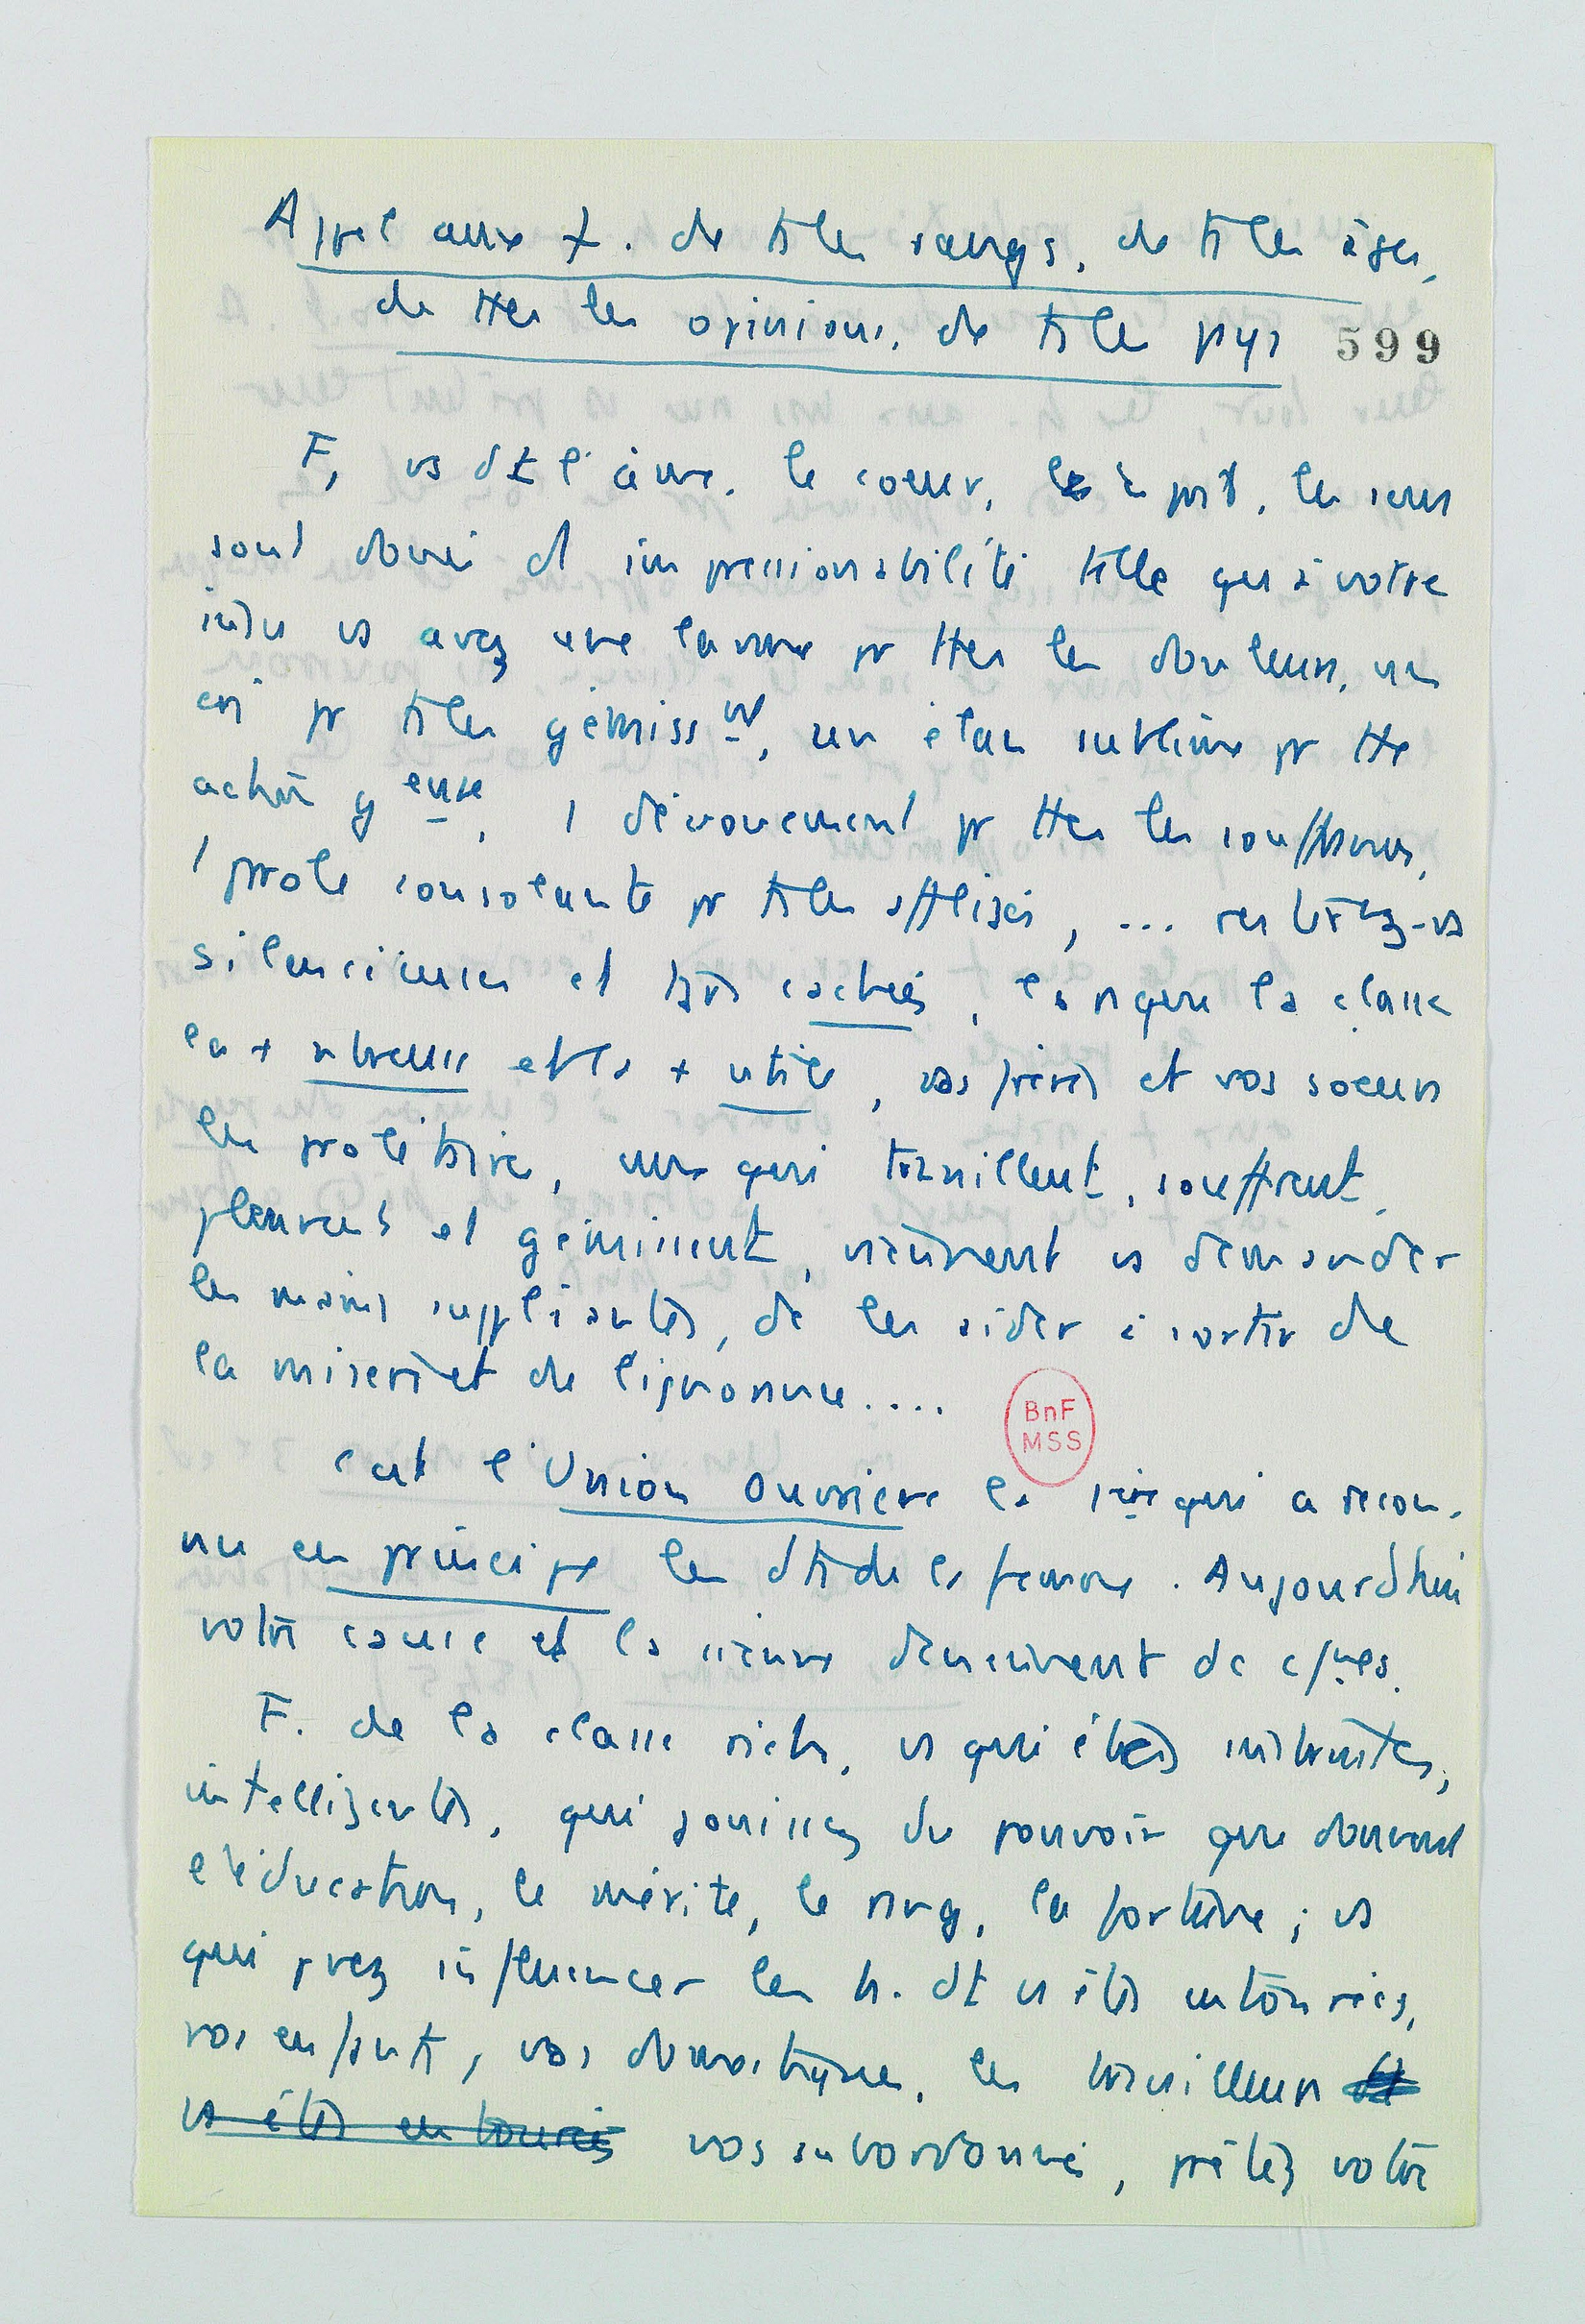 Appel aux f. de ts les rangs, de ts les âges,
de ttes les opinions, de ts les pys 599
F, vs dt l'âme, le coeur, l'esprit, les sens
sont doués d' impressionabilité telle qu'à votre
insu vs avez une larme pr ttes les douleurs, un
cri pr ts les gémisst, un élan sublime pr tte
action geuse, 1 dévouement pr ttes les souffrances,
1 prole consolante pr ts les affligés, ... resterez-vs
silencieuses et bras cachés, lorsque la classe
la + nbreuse et la + utile, vos frères et vos soeurs
les prolétaires, ceux qui travaillent, souffrent,
pleurent et gémissent, viennent vs demander
les mains suppliantes, de les aider à sortir de
la misère et de l'ignorance....
BnF
MSS
C'est l'Union Ouvrière la 1ère qui a recon-
nu en principe les dts de la femme. Aujourd'hui
votre cause et la sienne deviennent dc cmes.
F. de la classe riche, vs qui êtes instruites,
intelligentes, qui jouissez du pouvoir que donnent
l'éducation, le mérite, le rang, la fortune ; vs
qui pvez influencer les h. dt vs êtes entourées,
vos enfants, vos domestiques, les travailleurs
vs êtes entourées vos subordonnés, prêtez votre